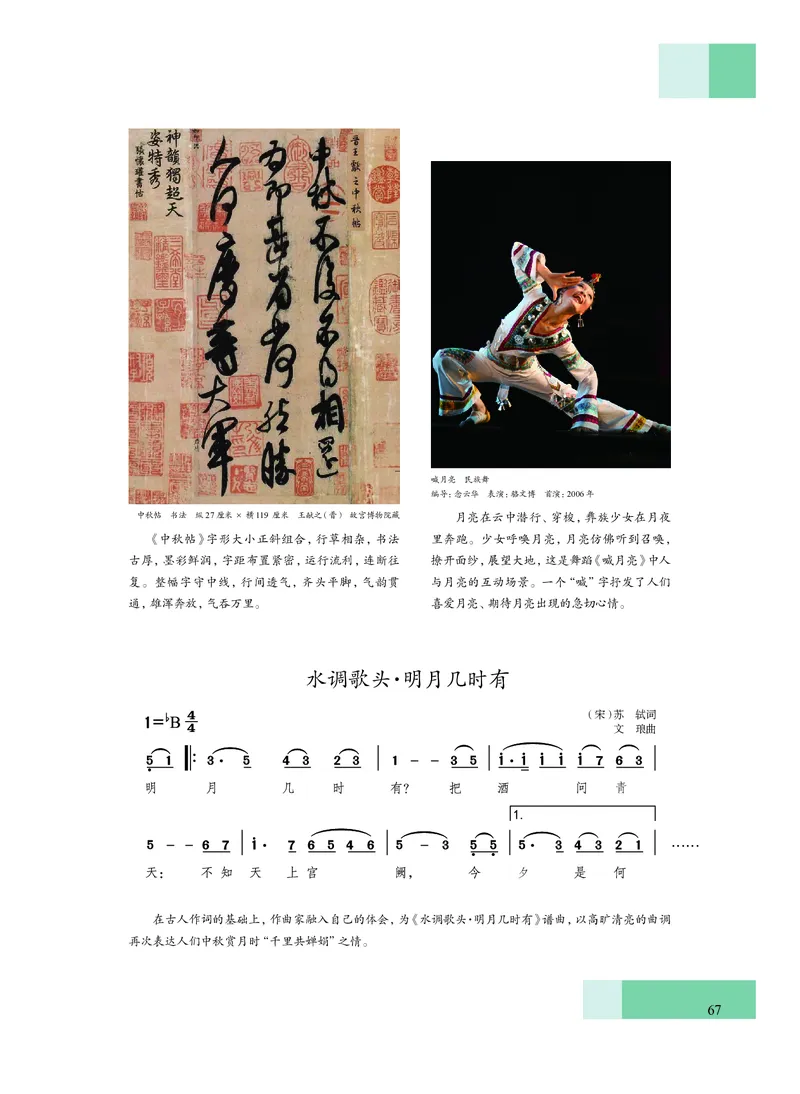 神韻獨超天
姿特秀
張懷瓘書估
晋王獻之中秋帖
中秋不復不得相還
為即甚省如何然勝
人何慶等大軍
中秋帖 书法 纵27厘米 × 横119 厘米 王献之(晋) 故宫博物院藏
《中秋帖》字形大小正斜组合，行草相杂，书法
古厚，墨彩鲜润，字距布置紧密，运行流利，连断往
复。整幅字守中线，行间透气，齐头平脚，气韵贯
通，雄浑奔放，气吞万里。
喊月亮 民族舞
编导：念云华 表演：骆文博 首演：2006年
月亮在云中潜行、穿梭，彝族少女在月夜
里奔跑。少女呼唤月亮，月亮仿佛听到召唤，
撩开面纱，展望大地，这是舞蹈《喊月亮》中人
与月亮的互动场景。一个“喊”字抒发了人们
喜爱月亮、期待月亮出现的急切心情。
水调歌头·明月几时有
1=♭B 4/4
（宋）苏 轼词
文 琅曲
5 1 3· 5 4 3 2 3 1 - - 3 5 i·i i i i 7 6 3
明 月 几 时 有? 把 酒 问 青
1.
5 - - 6 7 i· 7 6 5 4 6 5 - 3 5 5 5· 3 4 3 2 1 ……
天： 不 知 天 上 宫 阙， 今 夕 是 何
在古人作词的基础上，作曲家融入自己的体会，为《水调歌头·明月几时有》谱曲，以高旷清亮的曲调
再次表达人们中秋赏月时“千里共婵娟”之情。
67